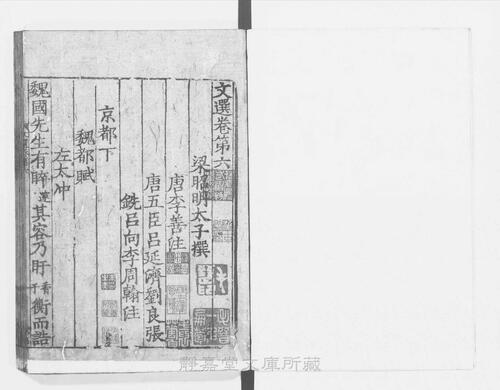 文選卷第六
梁昭明太子撰
唐李善注
唐五臣呂延濟劉良張
銑呂向李周翰注
京都下
魏都賦
左太冲
魏國先生有睟其容乃盱衡而誥
靜嘉堂文庫所藏